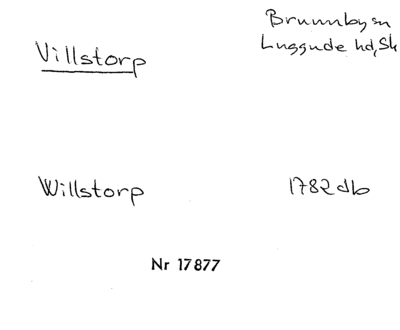 Villstorp
Brunnby sn
Luggude hd, Sk
Willstorp
1782 db
Nr 17877